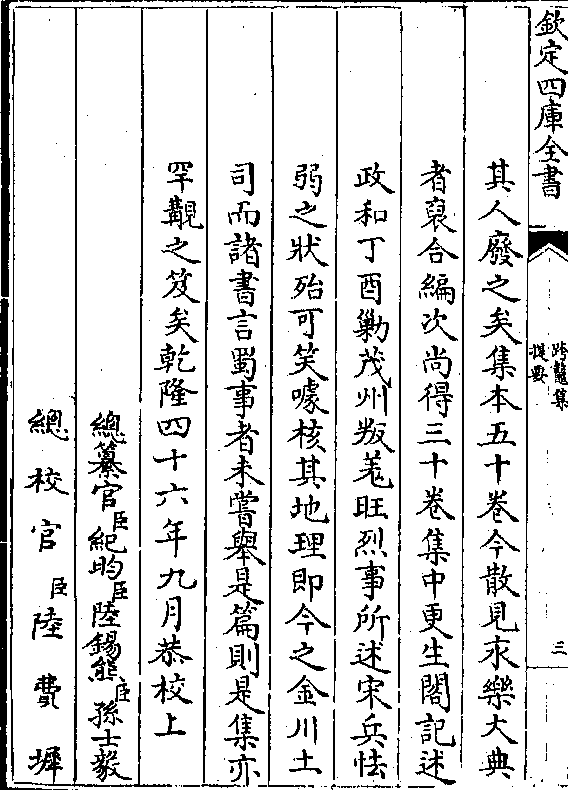 欽定四庫全書
跨鼇集
提要
三
其人廢之矣集本五十卷今散見永樂大典
者裒合編次尚得三十卷集中更生閣記述
政和丁酉勦茂州叛羌旺烈事所述宋兵怯
弱之狀殆可笑噱核其地理即今之金川土
司而諸書言蜀事者未嘗舉是篇則是集亦
罕覯之笈矣乾隆四十六年九月恭校上
總纂官臣紀昀臣陸錫熊臣孫士毅
總校官臣陸費墀